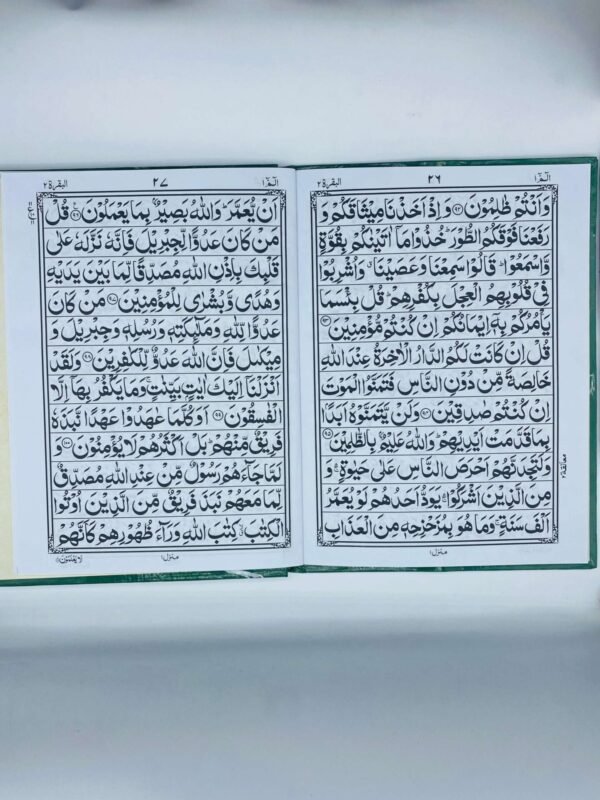 الٓمّٓ ١ ٢٦ البقرة ٢
وَاَنْتُمْ ظٰلِمُوْنَ ﴿٩٢﴾ وَاِذْ اَخَذْنَا مِيْثَاقَكُمْ وَ
رَفَعْنَا فَوْقَكُمُ الطُّوْرَ ؕ خُذُوْا مَاۤ اٰتَيْنٰكُمْ بِقُوَّةٍ
وَّاسْمَعُوْا ؕ قَالُوْا سَمِعْنَا وَعَصَيْنَا ۗ وَاُشْرِبُوْا
فِيْ قُلُوْبِهِمُ الْعِجْلَ بِكُفْرِهِمْ ؕ قُلْ بِئْسَمَا
يَاْمُرُكُمْ بِهٖۤ اِيْمَانُكُمْ اِنْ كُنْتُمْ مُّؤْمِنِيْنَ ﴿٩٣﴾
قُلْ اِنْ كَانَتْ لَكُمُ الدَّارُ الْاٰخِرَةُ عِنْدَ اللّٰهِ
خَالِصَةً مِّنْ دُوْنِ النَّاسِ فَتَمَنَّوُا الْمَوْتَ
اِنْ كُنْتُمْ صٰدِقِيْنَ ﴿٩٤﴾ وَلَنْ يَّتَمَنَّوْهُ اَبَدًۢا
بِمَا قَدَّمَتْ اَيْدِيْهِمْ ؕ وَاللّٰهُ عَلِيْمٌۢ بِالظّٰلِمِيْنَ ﴿٩٥﴾
وَلَتَجِدَنَّهُمْ اَحْرَصَ النَّاسِ عَلٰى حَيٰوةٍ ۛۚ وَ
مِنَ الَّذِيْنَ اَشْرَكُوْا ۛۚ يَوَدُّ اَحَدُهُمْ لَوْ يُعَمَّرُ
اَلْفَ سَنَةٍ ۚ وَمَا هُوَ بِمُزَحْزِحِهٖ مِنَ الْعَذَابِ
معانقة ٢
منزل ١
الٓمّٓ ١ ٢٧ البقرة ٢
اَنْ يُّعَمَّرَ ؕ وَاللّٰهُ بَصِيْرٌۢ بِمَا يَعْمَلُوْنَ ﴿٩٦﴾ قُلْ
مَنْ كَانَ عَدُوًّا لِّجِبْرِيْلَ فَاِنَّهٗ نَزَّلَهٗ عَلٰى
قَلْبِكَ بِاِذْنِ اللّٰهِ مُصَدِّقًا لِّمَا بَيْنَ يَدَيْهِ
وَهُدًى وَّبُشْرٰى لِلْمُؤْمِنِيْنَ ﴿٩٧﴾ مَنْ كَانَ
عَدُوًّا لِّلّٰهِ وَمَلٰٓئِكَتِهٖ وَرُسُلِهٖ وَجِبْرِيْلَ وَ
مِيْكٰىلَ فَاِنَّ اللّٰهَ عَدُوٌّ لِّلْكٰفِرِيْنَ ﴿٩٨﴾ وَلَقَدْ
اَنْزَلْنَاۤ اِلَيْكَ اٰيٰتٍۭ بَيِّنٰتٍ ۚ وَمَا يَكْفُرُ بِهَاۤ اِلَّا
الْفٰسِقُوْنَ ﴿٩٩﴾ اَوَكُلَّمَا عٰهَدُوْا عَهْدًا نَّبَذَهٗ
فَرِيْقٌ مِّنْهُمْ ؕ بَلْ اَكْثَرُهُمْ لَا يُؤْمِنُوْنَ ﴿١٠٠﴾ وَ
لَمَّا جَآءَهُمْ رَسُوْلٌ مِّنْ عِنْدِ اللّٰهِ مُصَدِّقٌ
لِّمَا مَعَهُمْ نَبَذَ فَرِيْقٌ مِّنَ الَّذِيْنَ اُوْتُوا
الْكِتٰبَ ۙ كِتٰبَ اللّٰهِ وَرَآءَ ظُهُوْرِهِمْ كَاَنَّهُمْ
منزل ١
لا يَعْلَمُوْنَ